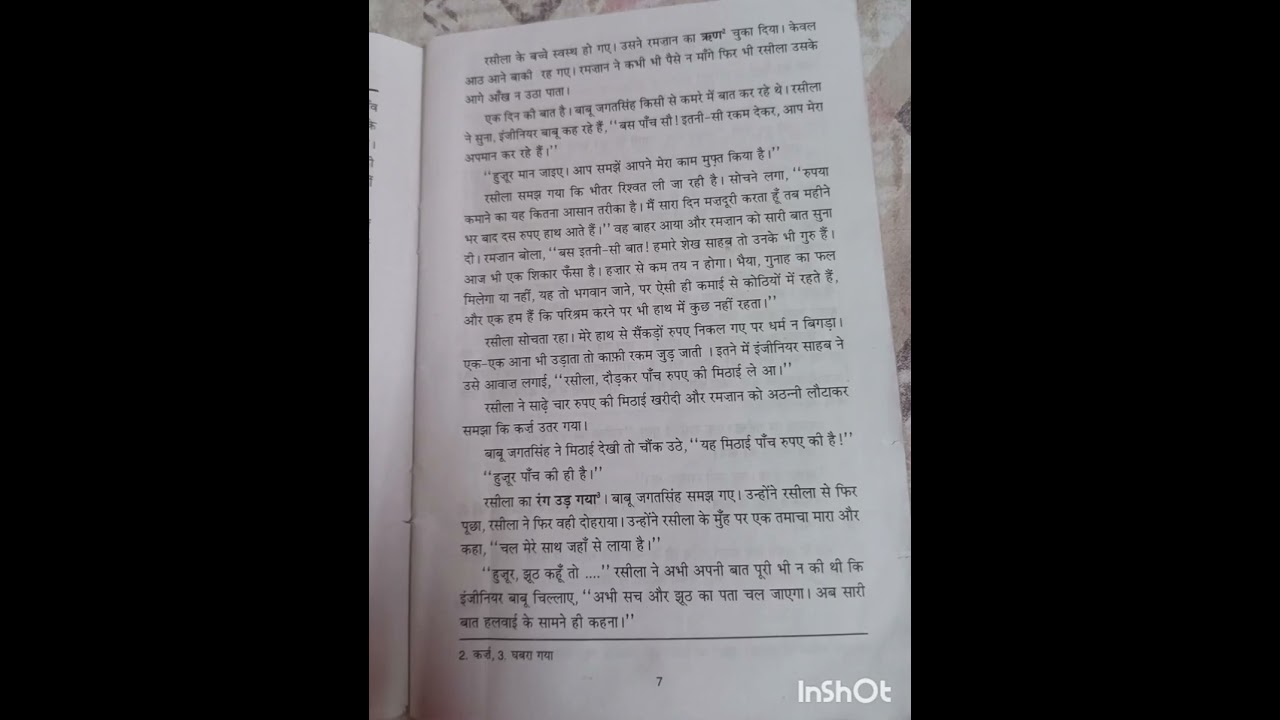 रसीला के बच्चे स्वस्थ हो गए। उसने रमज़ान का ऋण² चुका दिया। केवल
आठ आने बाकी रह गए। रमज़ान ने कभी भी पैसे न माँगे फिर भी रसीला उसके
आगे आँख न उठा पाता।
एक दिन की बात है। बाबू जगतसिंह किसी से कमरे में बात कर रहे थे। रसीला
ने सुना, इंजीनियर बाबू कह रहे हैं, ‘‘बस पाँच सौ! इतनी-सी रकम देकर, आप मेरा
अपमान कर रहे हैं।’’
‘‘हुज़ूर मान जाइए। आप समझें आपने मेरा काम मुफ़्त किया है।’’
रसीला समझ गया कि भीतर रिश्वत ली जा रही है। सोचने लगा, ‘‘रुपया
कमाने का यह कितना आसान तरीका है। मैं सारा दिन मज़दूरी करता हूँ तब महीने
भर बाद दस रुपए हाथ आते हैं।’’ वह बाहर आया और रमज़ान को सारी बात सुना
दी। रमज़ान बोला, ‘‘बस इतनी-सी बात! हमारे शेख साहब तो उनके भी गुरु हैं।
आज भी एक शिकार फँसा है। हज़ार से कम तय न होगा। भैया, गुनाह का फल
मिलेगा या नहीं, यह तो भगवान जाने, पर ऐसी ही कमाई से कोठियों में रहते हैं,
और एक हम हैं कि परिश्रम करने पर भी हाथ में कुछ नहीं रहता।’’
रसीला सोचता रहा। मेरे हाथ से सैंकड़ों रुपए निकल गए पर धर्म न बिगड़ा।
एक-एक आना भी उड़ाता तो काफ़ी रकम जुड़ जाती । इतने में इंजीनियर साहब ने
उसे आवाज़ लगाई, ‘‘रसीला, दौड़कर पाँच रुपए की मिठाई ले आ।’’
रसीला ने साढ़े चार रुपए की मिठाई खरीदी और रमज़ान को अठन्नी लौटाकर
समझा कि कर्ज़ उतर गया।
बाबू जगतसिंह ने मिठाई देखी तो चौंक उठे, ‘‘यह मिठाई पाँच रुपए की है!’’
‘‘हुज़ूर पाँच की ही है।’’
रसीला का रंग उड़ गया³। बाबू जगतसिंह समझ गए। उन्होंने रसीला से फिर
पूछा, रसीला ने फिर वही दोहराया। उन्होंने रसीला के मुँह पर एक तमाचा मारा और
कहा, ‘‘चल मेरे साथ जहाँ से लाया है।’’
‘‘हुज़ूर, झूठ कहूँ तो ....’’ रसीला ने अभी अपनी बात पूरी भी न की थी कि
इंजीनियर बाबू चिल्लाए, ‘‘अभी सच और झूठ का पता चल जाएगा। अब सारी
बात हलवाई के सामने ही कहना।’’
2. कर्ज़, 3. घबरा गया
7
InShOt